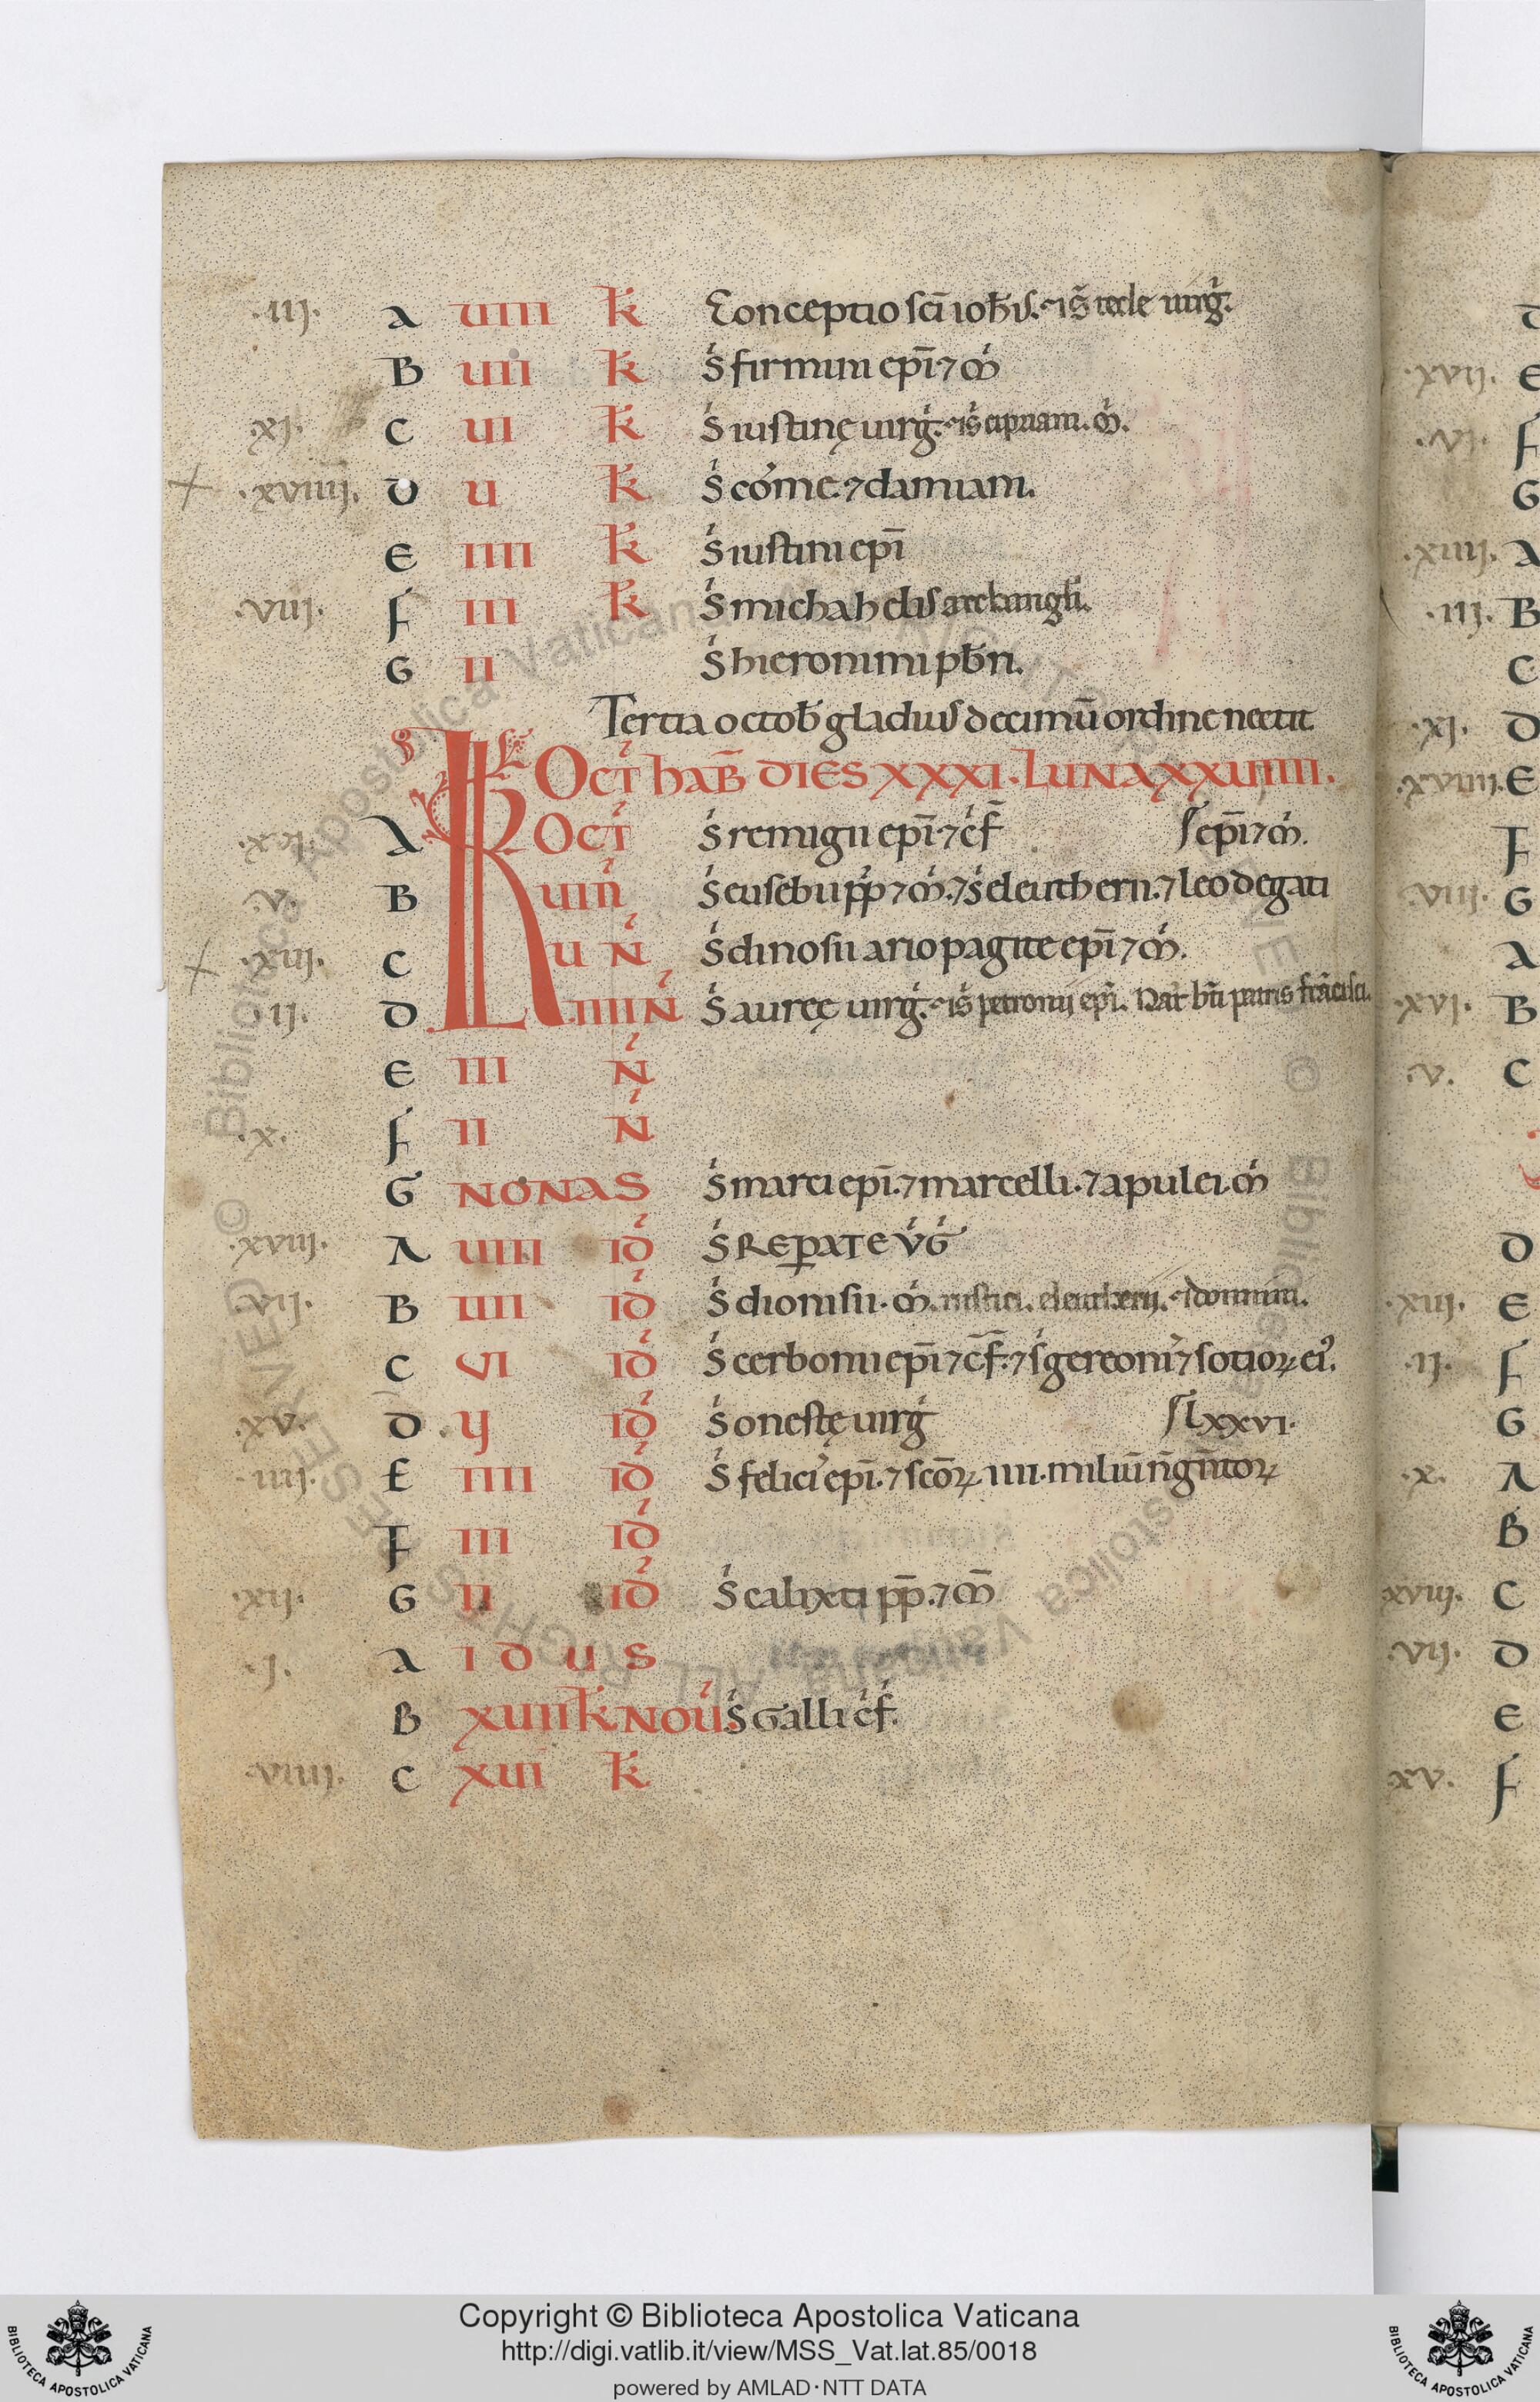 .iij. A UIII k̄ Conceptio sc̄i ioh̄is. ⁊ S̄ tecle uirḡ.
B UII k̄ S̓ firmini ep̄i ⁊ m̓
.xj. C UI k̄ S̓ iustinę uirg̓. ⁊ S̓ cipriani. m̓.
.xviiij. D U k̄ S̓ cosme. ⁊ damiani.
E IIII k̄ S̓ iustini ep̄i
.viij. F III k̄ S̓ michahelis archangl̄i.
G II S̓ hieronimi pb̄ri.
Tertia octob̄ gladius decimū ordine nectit
KL OCT̓ haB̄ DIES XXXI. LUNA XXUIIII.
A OCT̓ S̓ remigii ep̄i. ⁊ c̓f̄ ep̄i ⁊ m̓.
.v. B UI N̓ S̓ eusebii pp̓ ⁊ m̓. ⁊ S̓ eleutherii. ⁊ leodegarii
.xiij. C U N̓ S̓ dinosii ariopagite ep̄i ⁊ m̓.
.ij. D IIII N̓ S̓ aureę uirg̓. ⁊ S̓ petronij ep̄i. Nat̓ bt̄i patris frācisci.
E III N̓
.x. F II N̓
G NONAS S̓ marci ep̄i. ⁊ marcelli. ⁊ apulei. m̓
.xviij. A UIII ID̓ S̓ REPARATE V̓G̓
.vij. B UII ID̓ S̓ dionisii. m̓. rustici. eleutherij. ⁊ domnini.
C VI ID̓ S̓ cerbonii ep̄i ⁊ c̄f̄. ⁊ s̓ gereonis ⁊ sotioꝝ ei᾽.
.xv. D V ID̓ S̓ onestę uirg̓ lxxvi.
.iiij. E IIII ID̓ S̓ felicis ep̄i. ⁊ scōꝝ iiii. miliū n̄gn̄toꝝ
F III ID̓
.xij. G II ID̓ S̓ calixti pp̄. ⁊ m̄
.j. A IDUS
B XUII k̄ NOU̓. S̓ Galli c̓f̓.
.viiij. C XUI k̄
Copyright © Biblioteca Apostolica Vaticana
http://digi.vatlib.it/view/MSS_Vat.lat.85/0018
powered by AMLAD·NTT DATA
BIBLIOTECA APOSTOLICA VATICANA
BIBLIOTECA APOSTOLICA VATICANA